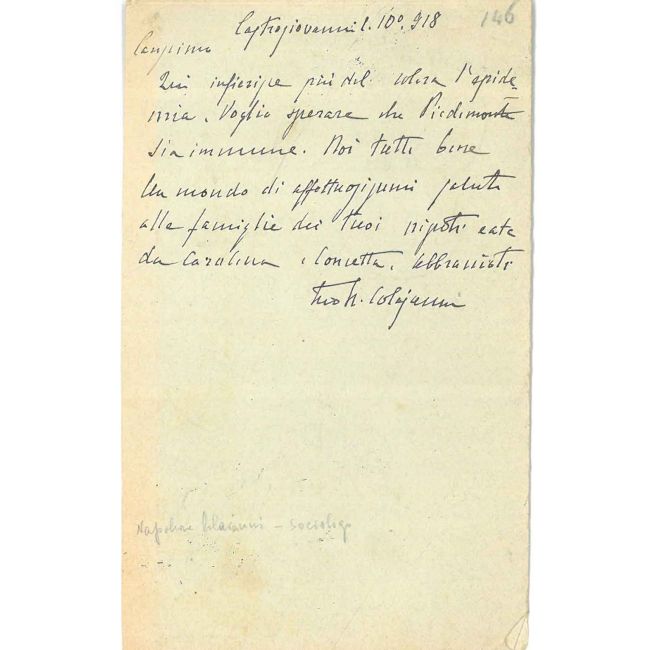 146
Castrogiovanni 10° 918
Carissimo
Qui infierisce più del colera l'epide-
mia. Voglio sperare che Piedimonte
sia immune. Noi tutti bene
Un mondo di affettuosissimi saluti
alle famiglie dei tuoi nipoti e a te
da Carolina e Concetta. abbracciati
tuo N. Colajanni
Napoleone Colaianni - sociologo